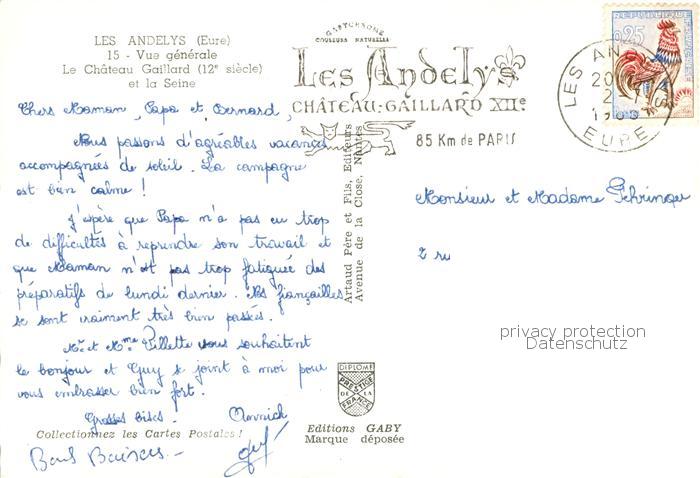 LES ANDELYS (Eure)
15 - Vue générale
Le Château Gaillard (12e siècle)
et la Seine
Chers Maman, Papa et Bernard,
Nous passons d'agréables vacances
accompagnées de soleil. La campagne
est bien calme !
J'espère que Papa n'a pas eu trop
de difficultés à reprendre son travail et
que Maman n'est pas trop fatiguée des
préparatifs de lundi dernier. Nos fiançailles
se sont vraiment très bien passées.
Mr et Mme Pillette vous souhaitent
le bonjour et Guy se joint à moi pour
vous embrasser bien fort.
Grosses bises. Annick
Collectionnez les Cartes Postales !
Bons Baisers
Guy
GASTRONOMIE
COULEURS NATURELLES
Les Andelys
CHÂTEAU-GAILLARD XIIe
85 Km de PARIS
Artaud Père et Fils, Editeurs
Avenue de la Close, Nantes
DIPLOME
PRESTIGE
DE LA
FRANCE
Editions GABY
Marque déposée
REPUBLIQUE
0,25
LES AN
20
2
EURE
Monsieur et Madame
2 ru
privacy protection
Datenschutz